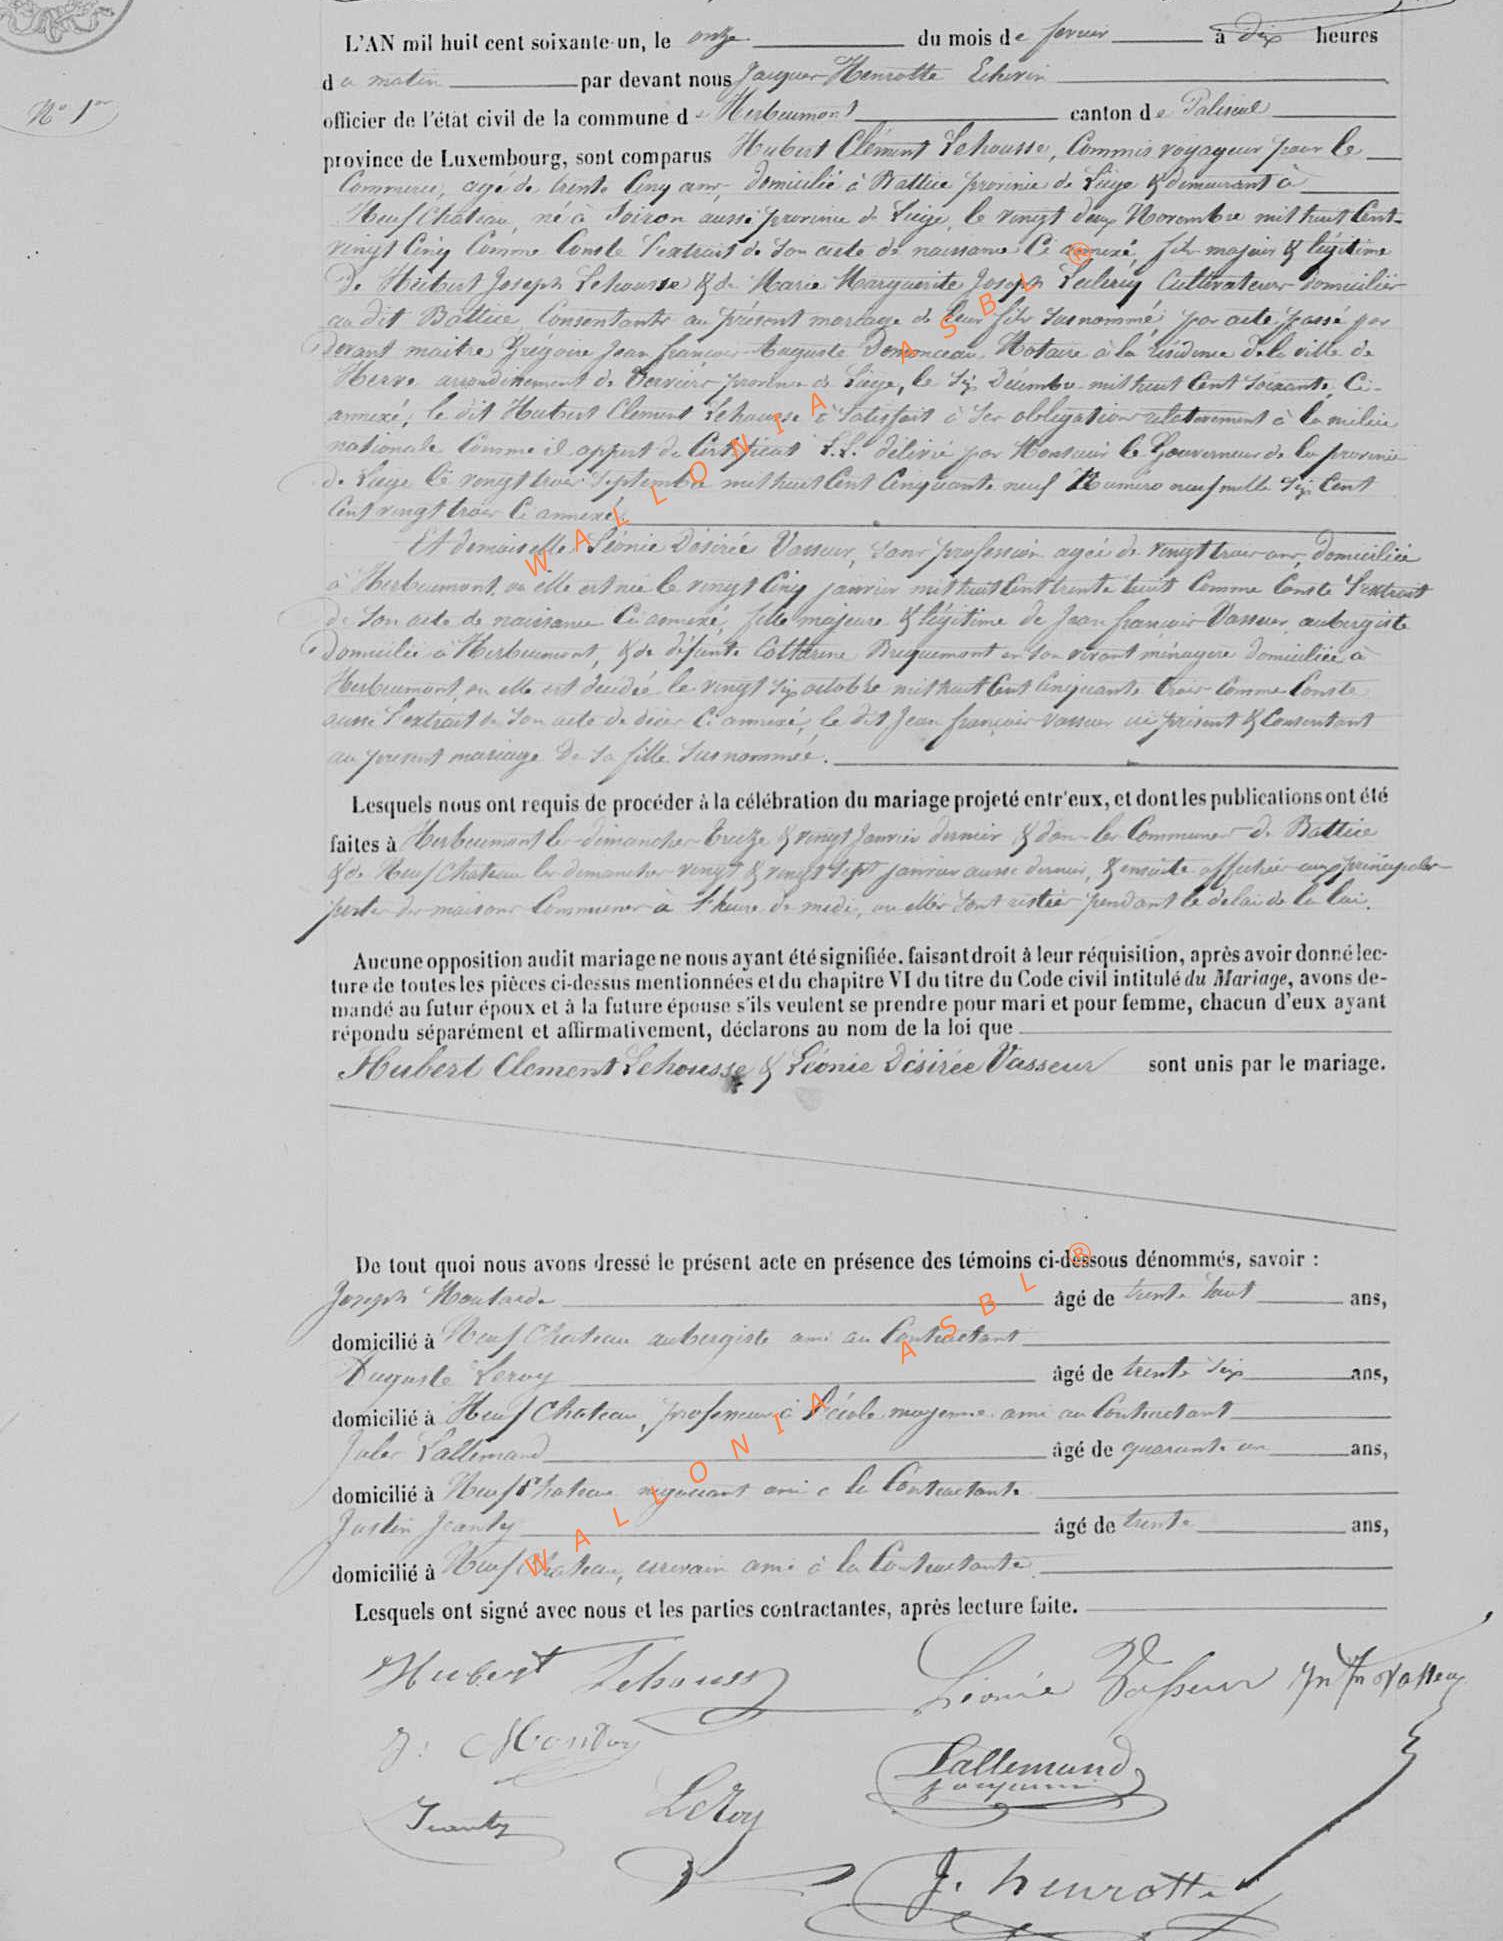 L'AN mil huit cent soixante-un, le onze du mois de fevrier à dix heures
du matin par devant nous Jacques Henrotte Echevin
N° 1er
officier de l'état civil de la commune d'Herbeumont canton de Paliseul
province de Luxembourg, sont comparus Hubert Clément Lehousse, Commis voyageur pour le
Commerce, agé de trente Cinq ans, domicilié à Battice province de Liége & demeurant à
Neufchâteau, né à Soiron aussi province de Liége, le vingt deux Novembre mil huit Cent
vingt Cinq Comme Conste l'extrait de son acte de naissance Ci annexé, fils majeur & légitime
de Hubert Joseph Lehousse & de Marie Marguerite Joseph Cultivateurs domiciliés
au dit Battice, Consentants au présent mariage de leur fils susnommé, par acte passé par
devant maitre Grégoire Jean françois Auguste Demonceau, Notaire à la résidence de la ville de
Herve arrondissement de Verviers province de Liége, le Six Décembre mil huit Cent soixante, Ci-
annexé, le dit Hubert Clément Lehousse a satisfait à ses obligations relativement à la milice
nationale Comme il appert du Certificat L.L. délivré par Monsieur le Gouverneur de la province
de Liége le vingt trois Septembre mil huit Cent Cinquante neuf Numero neuf mille Six Cent
Cent vingt trois Ci annexé.
Et demoiselle Léonie Désirée Vasseur, sans profession agée de vingt trois ans, domiciliée
à Herbeumont, où elle est née le vingt Cinq janvier mil huit Cent trente huit Comme Conste l'extrait
de son acte de naissance Ci annexé, fille majeure & légitime de Jean françois Vasseur, aubergiste
domicilié à Herbeumont, & de défunte Cattérine Briquemont en son vivant ménagère domiciliée à
Herbeumont, où elle est décédée le vingt six octobre mil huit Cent Cinquante trois Comme Conste
aussi l'extrait de son acte de décès Ci annexé, le dit Jean françois Vasseur ici présent & Consentant
au present mariage de sa fille susnommée.
Lesquels nous ont requis de procéder à la célébration du mariage projeté entr'eux, et dont les publications ont été
faites à Herbeumont les dimanches treize & vingt Janvier dernier & dans les Communes de Battice
& de Neufchateau les dimanches vingt & vingt sept janvier aussi dernier, & ensuite affichées aux principales
portes des maisons Communes à l'heure de midi, où elles sont restées pendant le délai de la loi.
Aucune opposition audit mariage ne nous ayant été signifiée. faisant droit à leur réquisition, après avoir donné lec-
ture de toutes les pièces ci-dessus mentionnées et du chapitre VI du titre du Code civil intitulé du Mariage, avons de-
mandé au futur époux et à la future épouse s'ils veulent se prendre pour mari et pour femme, chacun d'eux ayant
répondu séparément et affirmativement, déclarons au nom de la loi que
Hubert Clement Lehousse & Léonie Désirée Vasseur sont unis par le mariage.
De tout quoi nous avons dressé le présent acte en présence des témoins ci-dessous dénommés, savoir :
Joseph âgé de trente huit ans,
domicilié à Neufchateau aubergiste ami au Contractant
Auguste Leroy âgé de trente six ans,
domicilié à Neufchateau, professeur à l'école moyenne ami au Contractant
Jules Lallemand âgé de quarante un ans,
domicilié à Neufchateau négociant ami a la Contractante
Justin Jeanty âgé de trente ans,
domicilié à Neufchateau, ecrivain ami à la Contractante.
Lesquels ont signé avec nous et les parties contractantes, après lecture faite.
Hubert Lehousse Léonie Vasseur Jn Fn Vasseur
Lallemand
Jeanty LeRoy
J. henrotte
WALLONIA ASBL ®
WALLONIA ASBL ®